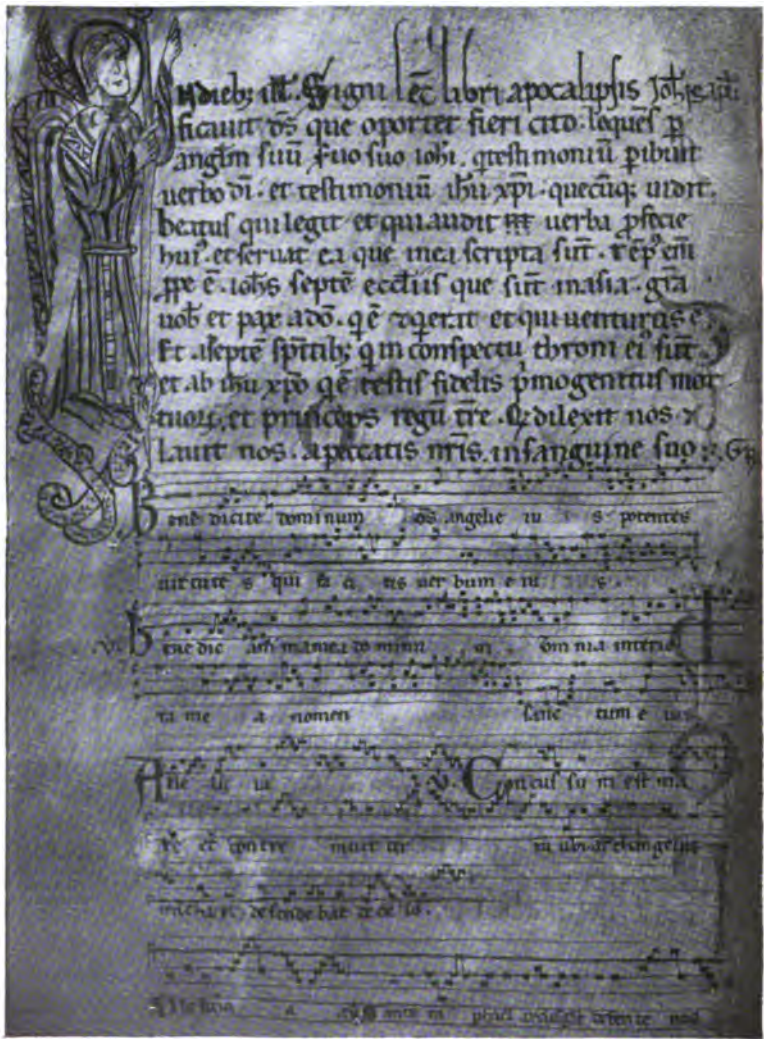 In dieb; ill'. Signi lec̄ libri apocalipsis Joh̄is apl̄i
ficauit ds̄ que oporter fieri cito. loquēs p̄
angl̄m suū suo ioh̄i. q testimoniū phibuit
uerbo dī. et testimoniū ihū xp̄i. quecūq; uidit.
beatus qui legit et qui audit uerba p̄fecie
hui'. et seruat ea que in ea scripta sūt.
ppe ē. ioh̄s septē eccl̄iis que sūt in asia. grā
uob̄ et pax ab q ē et qui uenturus ē.
Et a septē sp̄itib; q in cōnspectu throni ei' sūt.
et ab ihū xpō q ē testis fidelis p̄mogenitus mor
tuoꝝ. et princeps regū tr̄re. Q dilexit nos
Lauit nos. a peccatis nr̄is. in sanguine suo. Gr̄
Bene dicite dominum om̄s angelie iu s potentes
uirtute s qui fa ci tis uer bum e iu s
V. bene dic anima mea do minū om nia interio
ra me a nomen sanc tum e ius
Alle lu ia V. Concus su m est ma
re et contre muit ter ra ubi archangelus
michael descende bat de ce lo.
Alle luia a